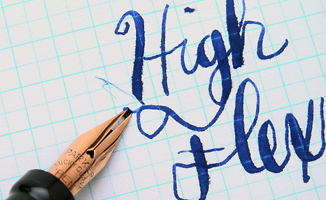 High
flex